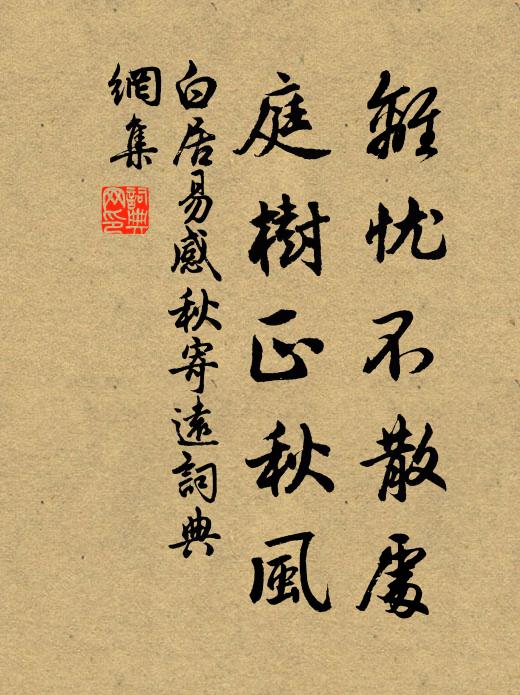 離忧不散處
庭樹正秋風
白居易感秋寄遠詞典
網集
詞典网印